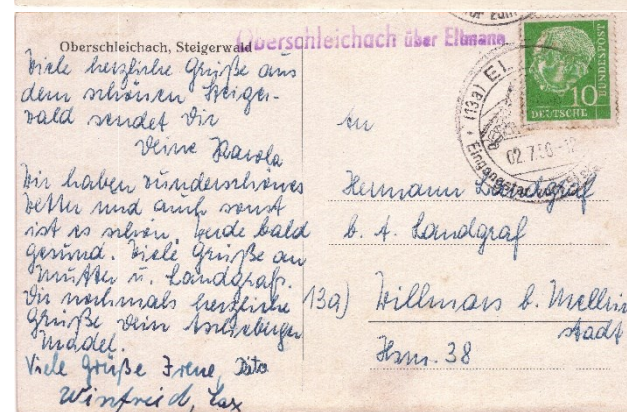 Oberschleichach, Steigerwald
Oberschleichach über Eltmann
Viele herzliche Grüße aus
dem schönen Steiger-
wald sendet Dir
Deine Karola
Wir haben wunderschönes
Wetter und auch sonst
ist es schön. Werde bald
gesund. Viele Grüße an
Mutter u. Landgrafs.
Dir nochmals herzliche
Grüße Dein
Madel.
Viele Grüße Irene,
Winfried,
10
DEUTSCHE
BUNDESPOST
(13a) EL
02.7.56
An
Hermann Landgraf
b. A. Landgraf
13a) Willmars b. Mellrich
stadt
Hsnr. 38